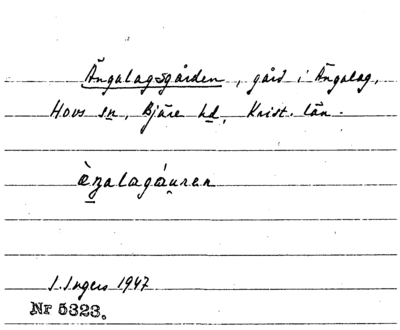 Ängalagsgården, gård i Ängalag,
Hovs sn, Bjäre hd, Krist. län.
I. Ingers 1947
Nr 5323.